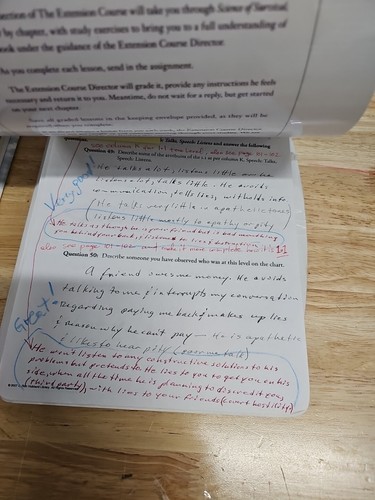 ection of The Extension Course will take you through Science of Survival,
by chapter, with study exercises to bring you to a full understanding of
ook under the guidance of the Extension Course Director.
As you complete each lesson, send in the assignment.
The Extension Course Director will grade it, provide any instructions he feels
necessary and return it to you. Meantime, do not wait for a reply, but get started
on your next chapter.
Save all graded lessons in the keeping envelope provided, as they will be
Talks; Speech: Listens and answer the following
Question 49: Describe some of the attributes of the 1.1 as per column K, Speech: Talks;
Speech: Listens.
He talks a lot, listens little
talks little. He avoids
communication, tells lies, withholds info
He talks very little in apathetic tones
listens little mostly to apathy or pity
Very good!
He talks as though he is your friend but is bad mouthing
you behind your back,
1.1
Question 50: Describe someone you have observed who was at this level on the chart.
A friend owes me money. He avoids
talking to me & interrupts my conversation
regarding paying me back & makes up lies
& reasons why he can't pay — He is apathetic
& likes to hear pity
Great!
He won't listen to my constructive solutions to his
problems but pretends to. He lies to you to get you on his
side, when all the time he is planning to discredit you
(third party), with lies to your friends (covert hostility)